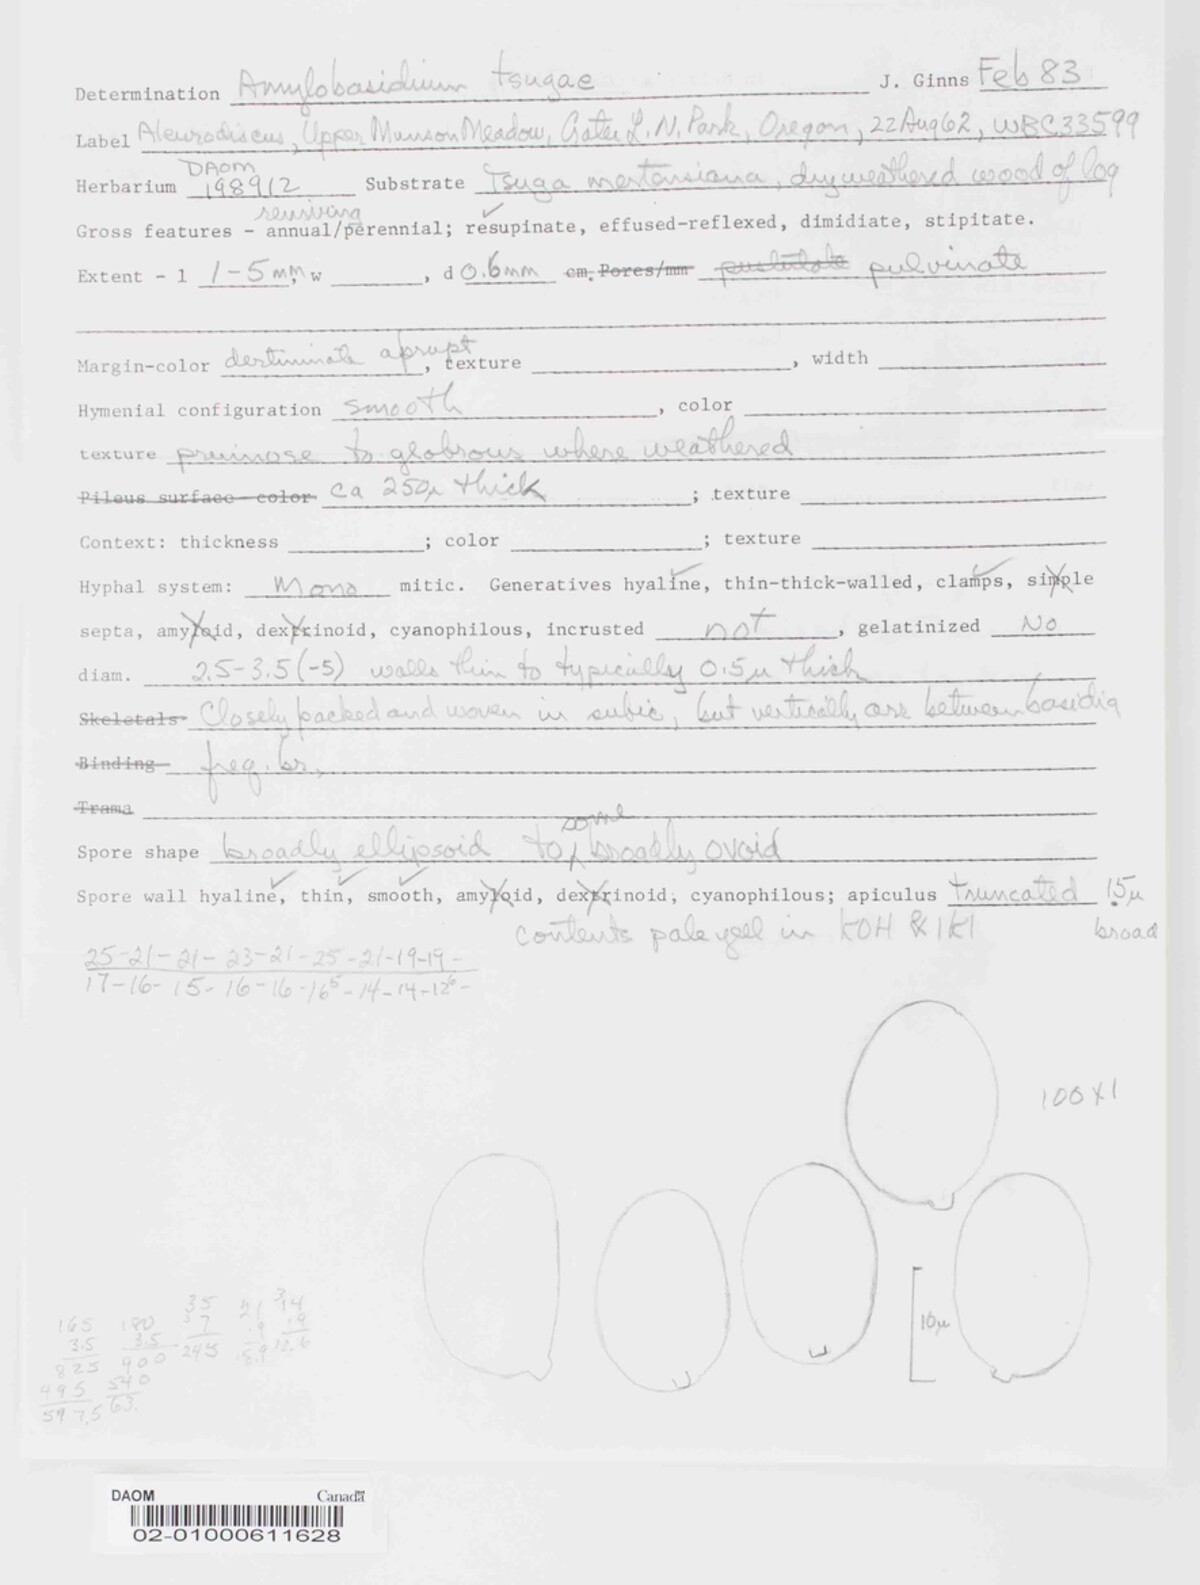 Determination Amylobasidium tsugae J. Ginns Feb 83
Label Aleurodiscus, Upper Munson Meadow, Crater L. N. Park, Oregon, 22 Aug 62, WBC 33599
DAOM
Herbarium 198912 Substrate Tsuga mertensiana, dry weathered wood of log
reviving
Gross features - annual/perennial; resupinate, effused-reflexed, dimidiate, stipitate.
Extent - l 1-5 mm, w , d 0.6mm cm. Pores/mm pustulate pulvinate
Margin-color abrupt , texture , width
Hymenial configuration smooth , color
texture pruinose to glabrous where weathered
Pileus surface - color ca 250µ thick ; texture
Context: thickness ; color ; texture
Hyphal system: Mono mitic. Generatives hyaline, thin-thick-walled, clamps, simple
septa, amyloid, dextrinoid, cyanophilous, incrusted not , gelatinized No
diam. 2.5-3.5(-5) walls thin to typically 0.5µ thick
Skeletals Closely packed and woven in subic, but vertically arr between basidia
Binding freq. br.
Trama
some
Spore shape broadly ellipsoid to broadly ovoid
Spore wall hyaline, thin, smooth, amyloid, dextrinoid, cyanophilous; apiculus truncated 1.5µ
contents pale yell in KOH & IKI broad
25-21-21-23-21-25-21-19-19-
17-16-15-16-16-16⁵-14-14-12⁶-
100X1
10µ
35 21 314
165 180 7 .9 .9
3.5 3.5 245 12.6
825 900
495 540
597.5 63.
DAOM Canada
02-01000611628